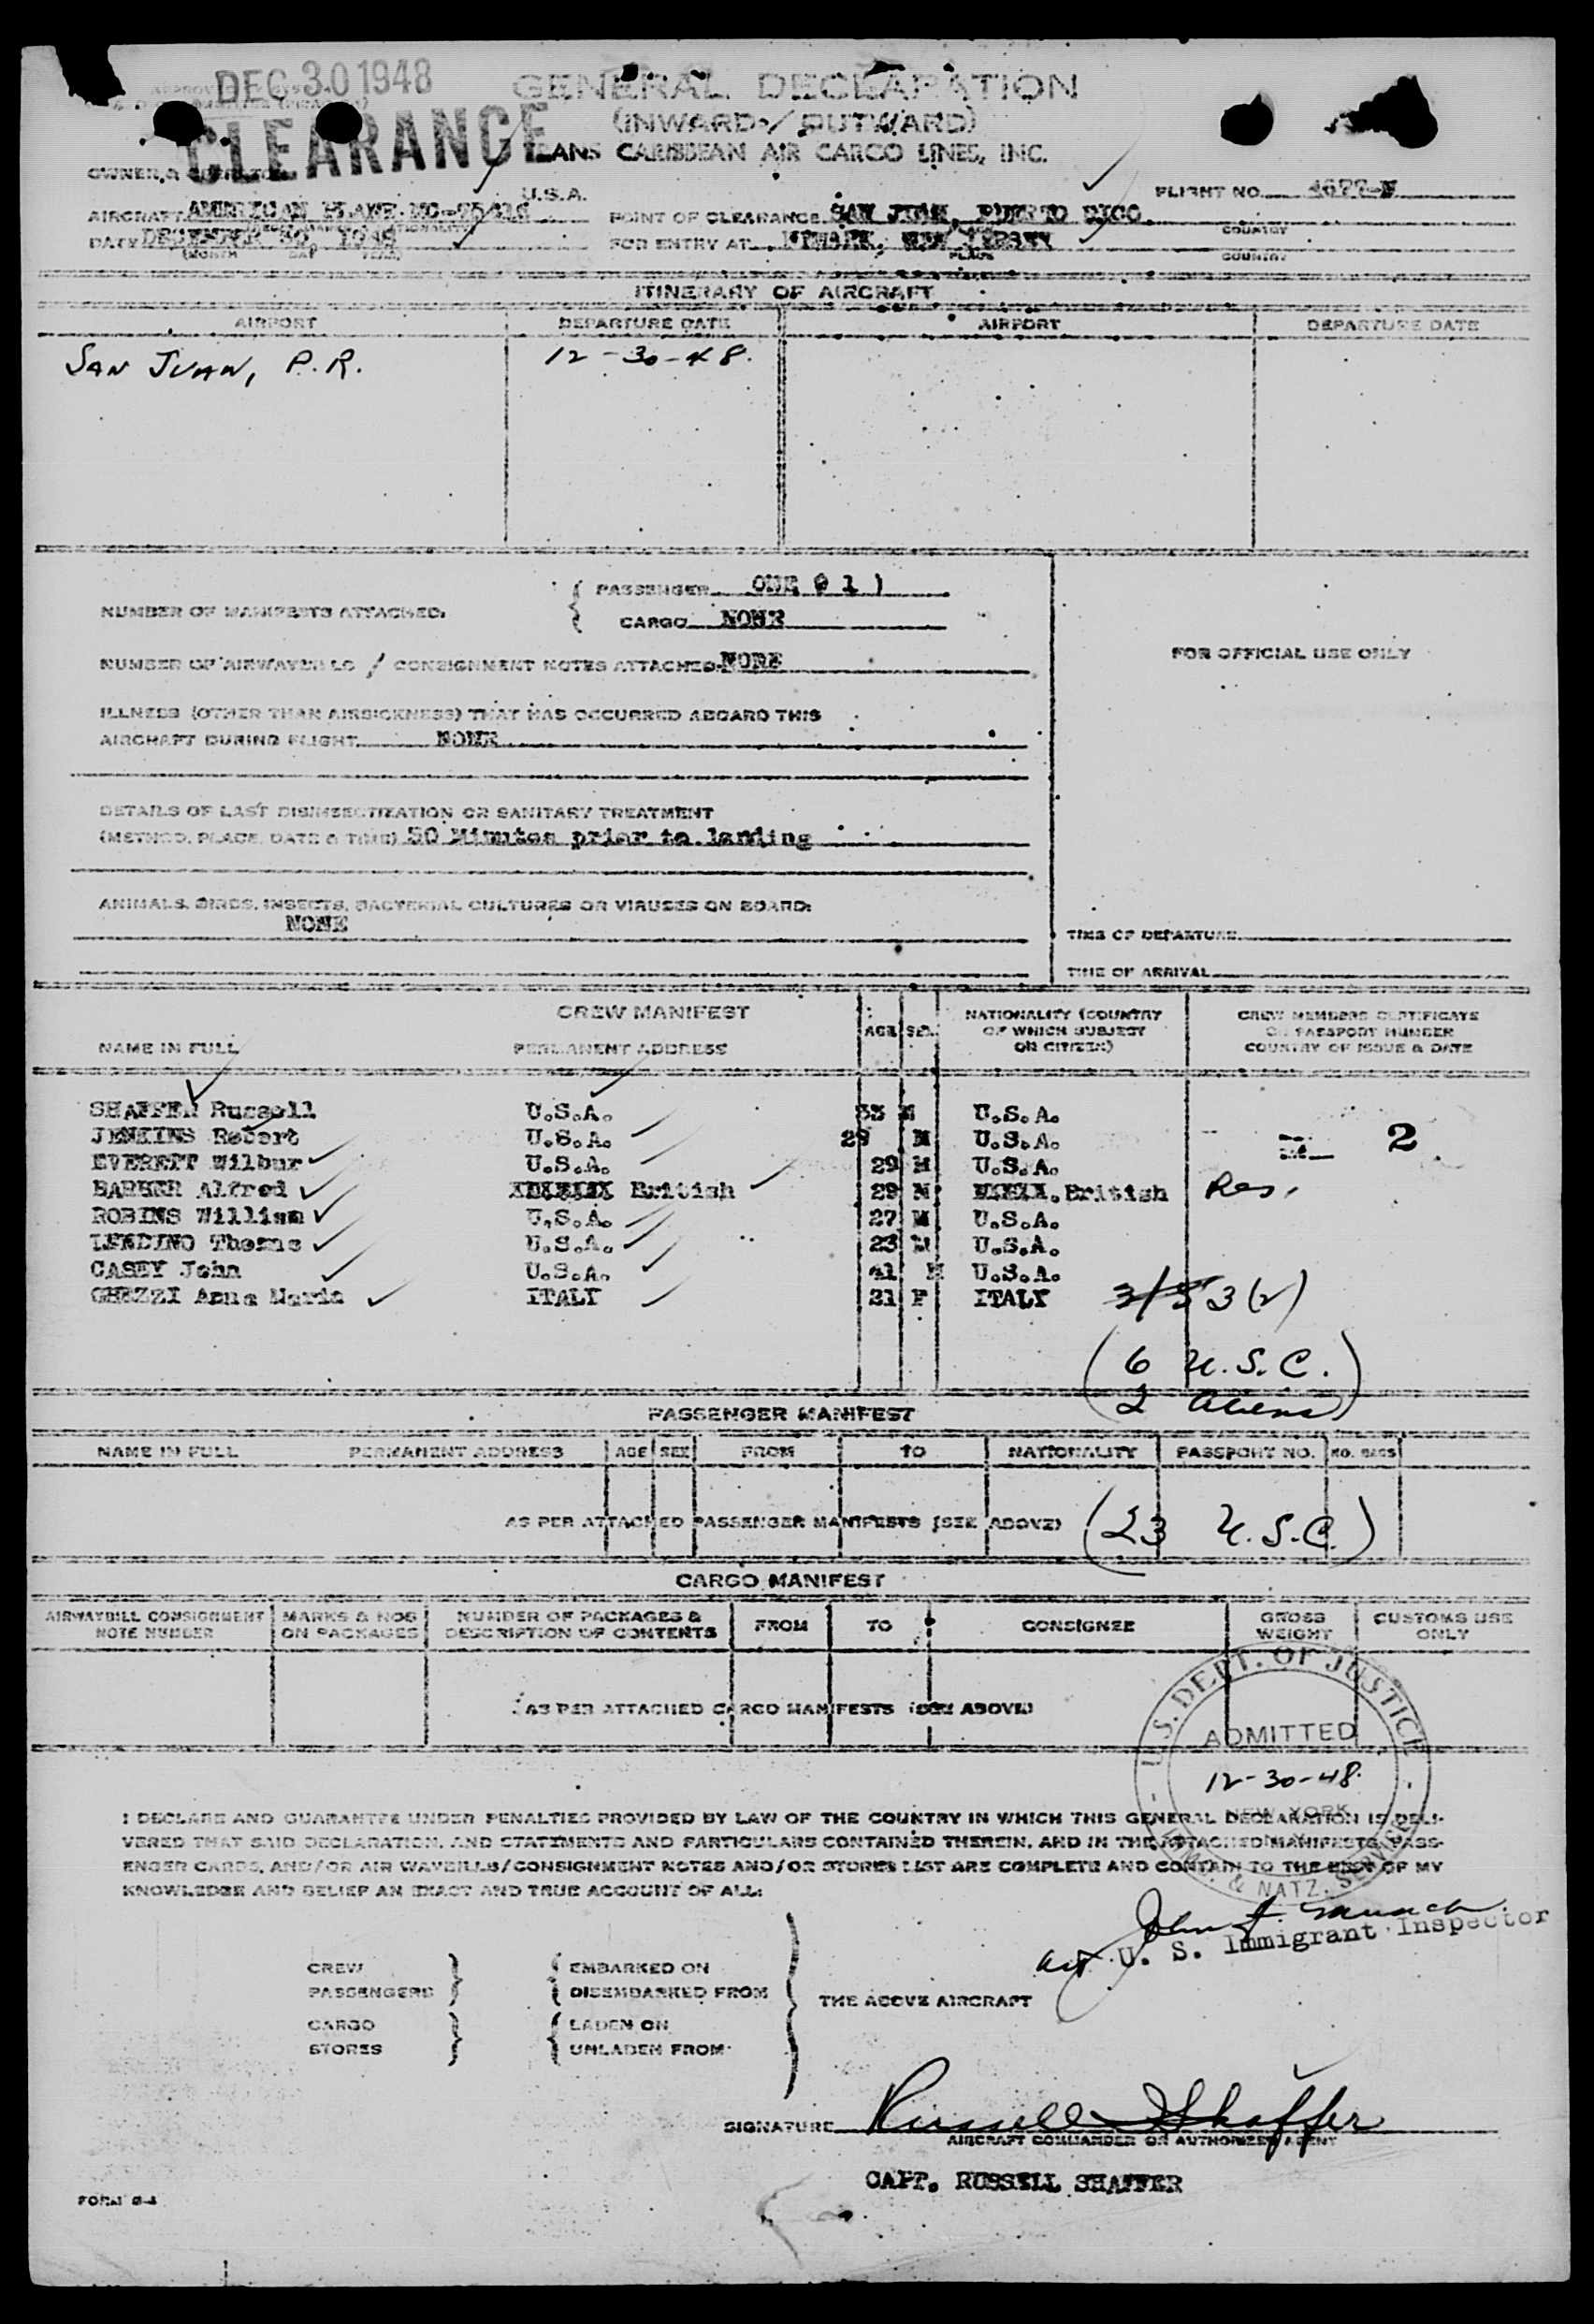 DEC 30 1948
CLEARANCE
GENERAL DECLARATION
(INWARD / OUTWARD)
TRANS CARIBBEAN AIR CARGO LINES, INC.
OWNER
U.S.A.
FLIGHT NO.
AIRCRAFT AMERICAN PLANE NC- POINT OF CLEARANCE SAN JUAN, PUERTO RICO
COUNTRY
DATE DECEMBER 30, 1948 FOR ENTRY AT NEWARK, NEW JERSEY
(MONTH DAY YEAR) PLACE COUNTRY
ITINERARY OF AIRCRAFT
AIRPORT DEPARTURE DATE AIRPORT DEPARTURE DATE
SAN JUAN, P.R. 12-30-48.
NUMBER OF MANIFESTS ATTACHED:
PASSENGER ONE ( 1 )
CARGO NONE
NUMBER OF AIRWAYBILLS / CONSIGNMENT NOTES ATTACHED NONE
FOR OFFICIAL USE ONLY
ILLNESS (OTHER THAN AIRSICKNESS) THAT HAS OCCURRED ABOARD THIS
AIRCRAFT DURING FLIGHT NONE
DETAILS OF LAST DISINSECTIZATION OR SANITARY TREATMENT
(METHOD, PLACE, DATE & TIME) 30 Minutes prior to landing
ANIMALS, BIRDS, INSECTS, BACTERIAL CULTURES OR VIRUSES ON BOARD:
NONE
TIME OF DEPARTURE
TIME OF ARRIVAL
CREW MANIFEST
NAME IN FULL PERMANENT ADDRESS AGE SEX NATIONALITY (COUNTRY OF WHICH SUBJECT OR CITIZEN) CREW MEMBERS CERTIFICATE OR PASSPORT NUMBER COUNTRY OF ISSUE & DATE
SHAFFER Russell U.S.A. 33 M U.S.A.
JENKINS Robert U.S.A. 29 M U.S.A. 2
EVERETT Wilbur U.S.A. 29 M U.S.A.
BARBER Alfred British 29 M British Res.
ROBINS William U.S.A. 27 M U.S.A.
LENDINO Thomas U.S.A. 23 M U.S.A.
CASEY John U.S.A. 41 M U.S.A.
GHEZZI Anna Maria ITALY 21 F ITALY 3/5 3(2)
(6 U.S.C.)
(2 aliens)
PASSENGER MANIFEST
NAME IN FULL PERMANENT ADDRESS AGE SEX FROM TO NATIONALITY PASSPORT NO. NO. BAGS
AS PER ATTACHED PASSENGER MANIFESTS (SEE ABOVE) (23 U.S.C.)
CARGO MANIFEST
AIRWAYBILL CONSIGNMENT NOTE NUMBER MARKS & NOS ON PACKAGES NUMBER OF PACKAGES & DESCRIPTION OF CONTENTS FROM TO CONSIGNEE GROSS WEIGHT CUSTOMS USE ONLY
AS PER ATTACHED CARGO MANIFESTS (SEE ABOVE)
U.S. DEPT. OF JUSTICE
ADMITTED
12-30-48.
NEW YORK
IMM. & NATZ. SERVICE
I DECLARE AND GUARANTEE UNDER PENALTIES PROVIDED BY LAW OF THE COUNTRY IN WHICH THIS GENERAL DECLARATION IS DELI-
VERED THAT SAID DECLARATION, AND STATEMENTS AND PARTICULARS CONTAINED THEREIN, AND IN THE ATTACHED MANIFESTS, PASS-
ENGER CARDS, AND/OR AIR WAYBILLS/CONSIGNMENT NOTES AND/OR STORES LIST ARE COMPLETE AND CONTAIN TO THE BEST OF MY
KNOWLEDGE AND BELIEF AN EXACT AND TRUE ACCOUNT OF ALL:
John J.
U. S. Immigrant Inspector
CREW EMBARKED ON
PASSENGERS DISEMBARKED FROM
THE ABOVE AIRCRAFT
CARGO LADEN ON
STORES UNLADEN FROM
SIGNATURE Russell Shaffer
AIRCRAFT COMMANDER OR AUTHORIZED AGENT
CAPT. RUSSELL SHAFFER
FORM